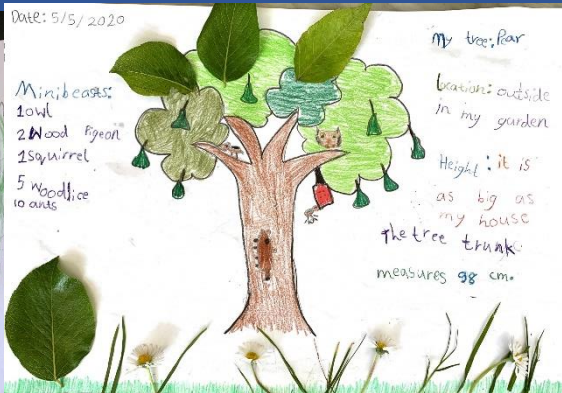 Date: 5/5/2020
Minibeasts:
1 owl
2 Wood Pigeon
1 squirrel
5 Woodlice
10 ants
My tree: Pear
Location: outside
in my garden
Height: it is
as big as
my house
The tree trunk
measures 98 cm.